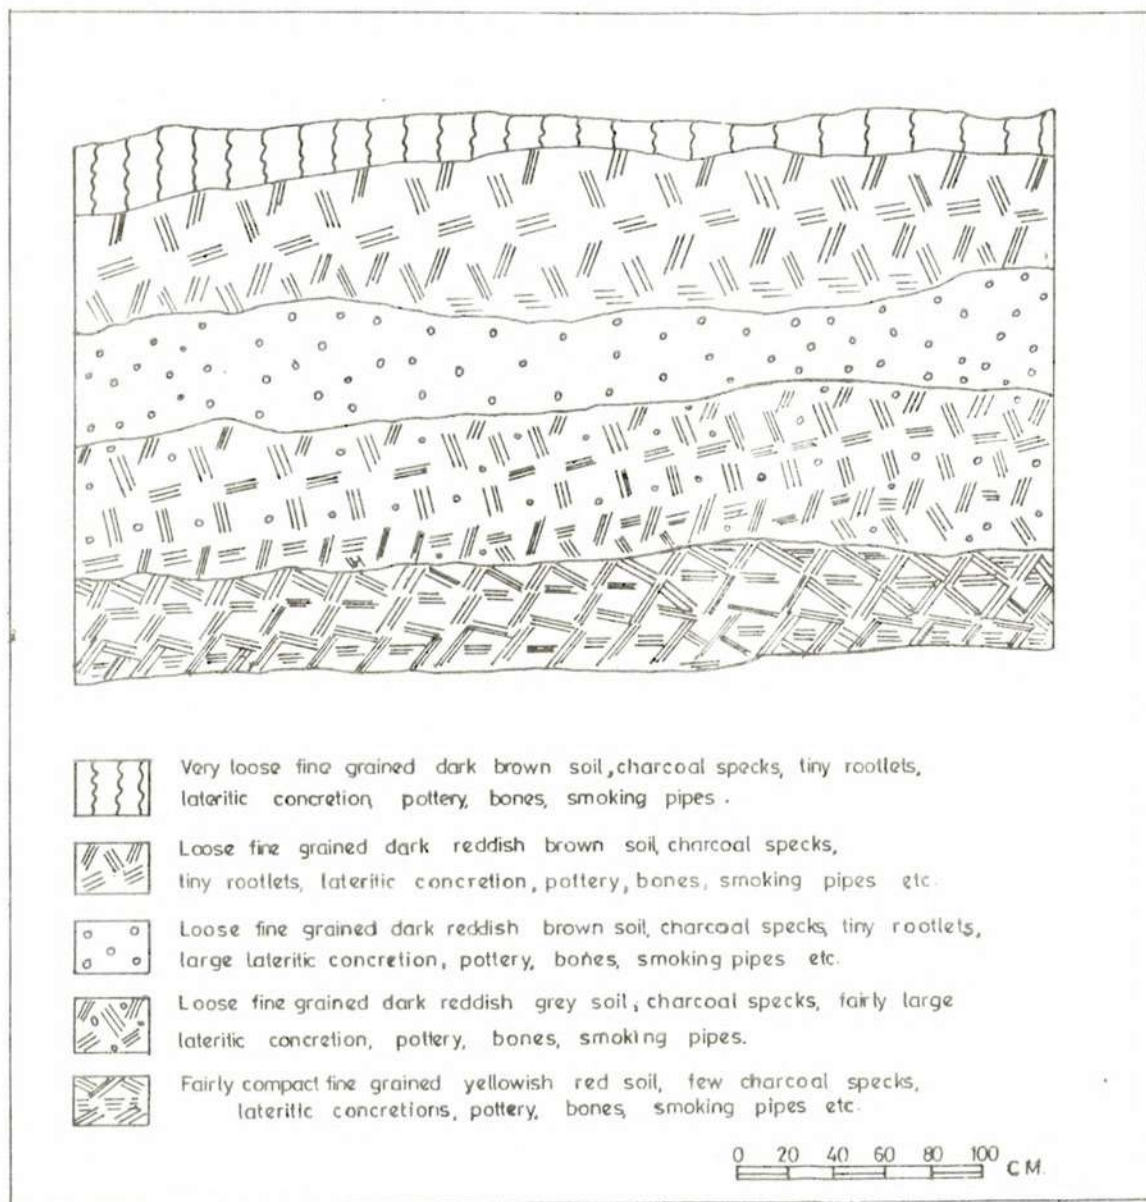 Very loose fine grained dark brown soil, charcoal specks, tiny rootlets,
lateritic concretion, pottery, bones, smoking pipes.
Loose fine grained dark reddish brown soil, charcoal specks,
tiny rootlets, lateritic concretion, pottery, bones, smoking pipes etc.
Loose fine grained dark reddish brown soil, charcoal specks, tiny rootlets,
large lateritic concretion, pottery, bones, smoking pipes etc.
Loose fine grained dark reddish grey soil, charcoal specks, fairly large
lateritic concretion, pottery, bones, smoking pipes.
Fairly compact fine grained yellowish red soil, few charcoal specks,
lateritic concretions, pottery, bones, smoking pipes etc.
0 20 40 60 80 100 CM.